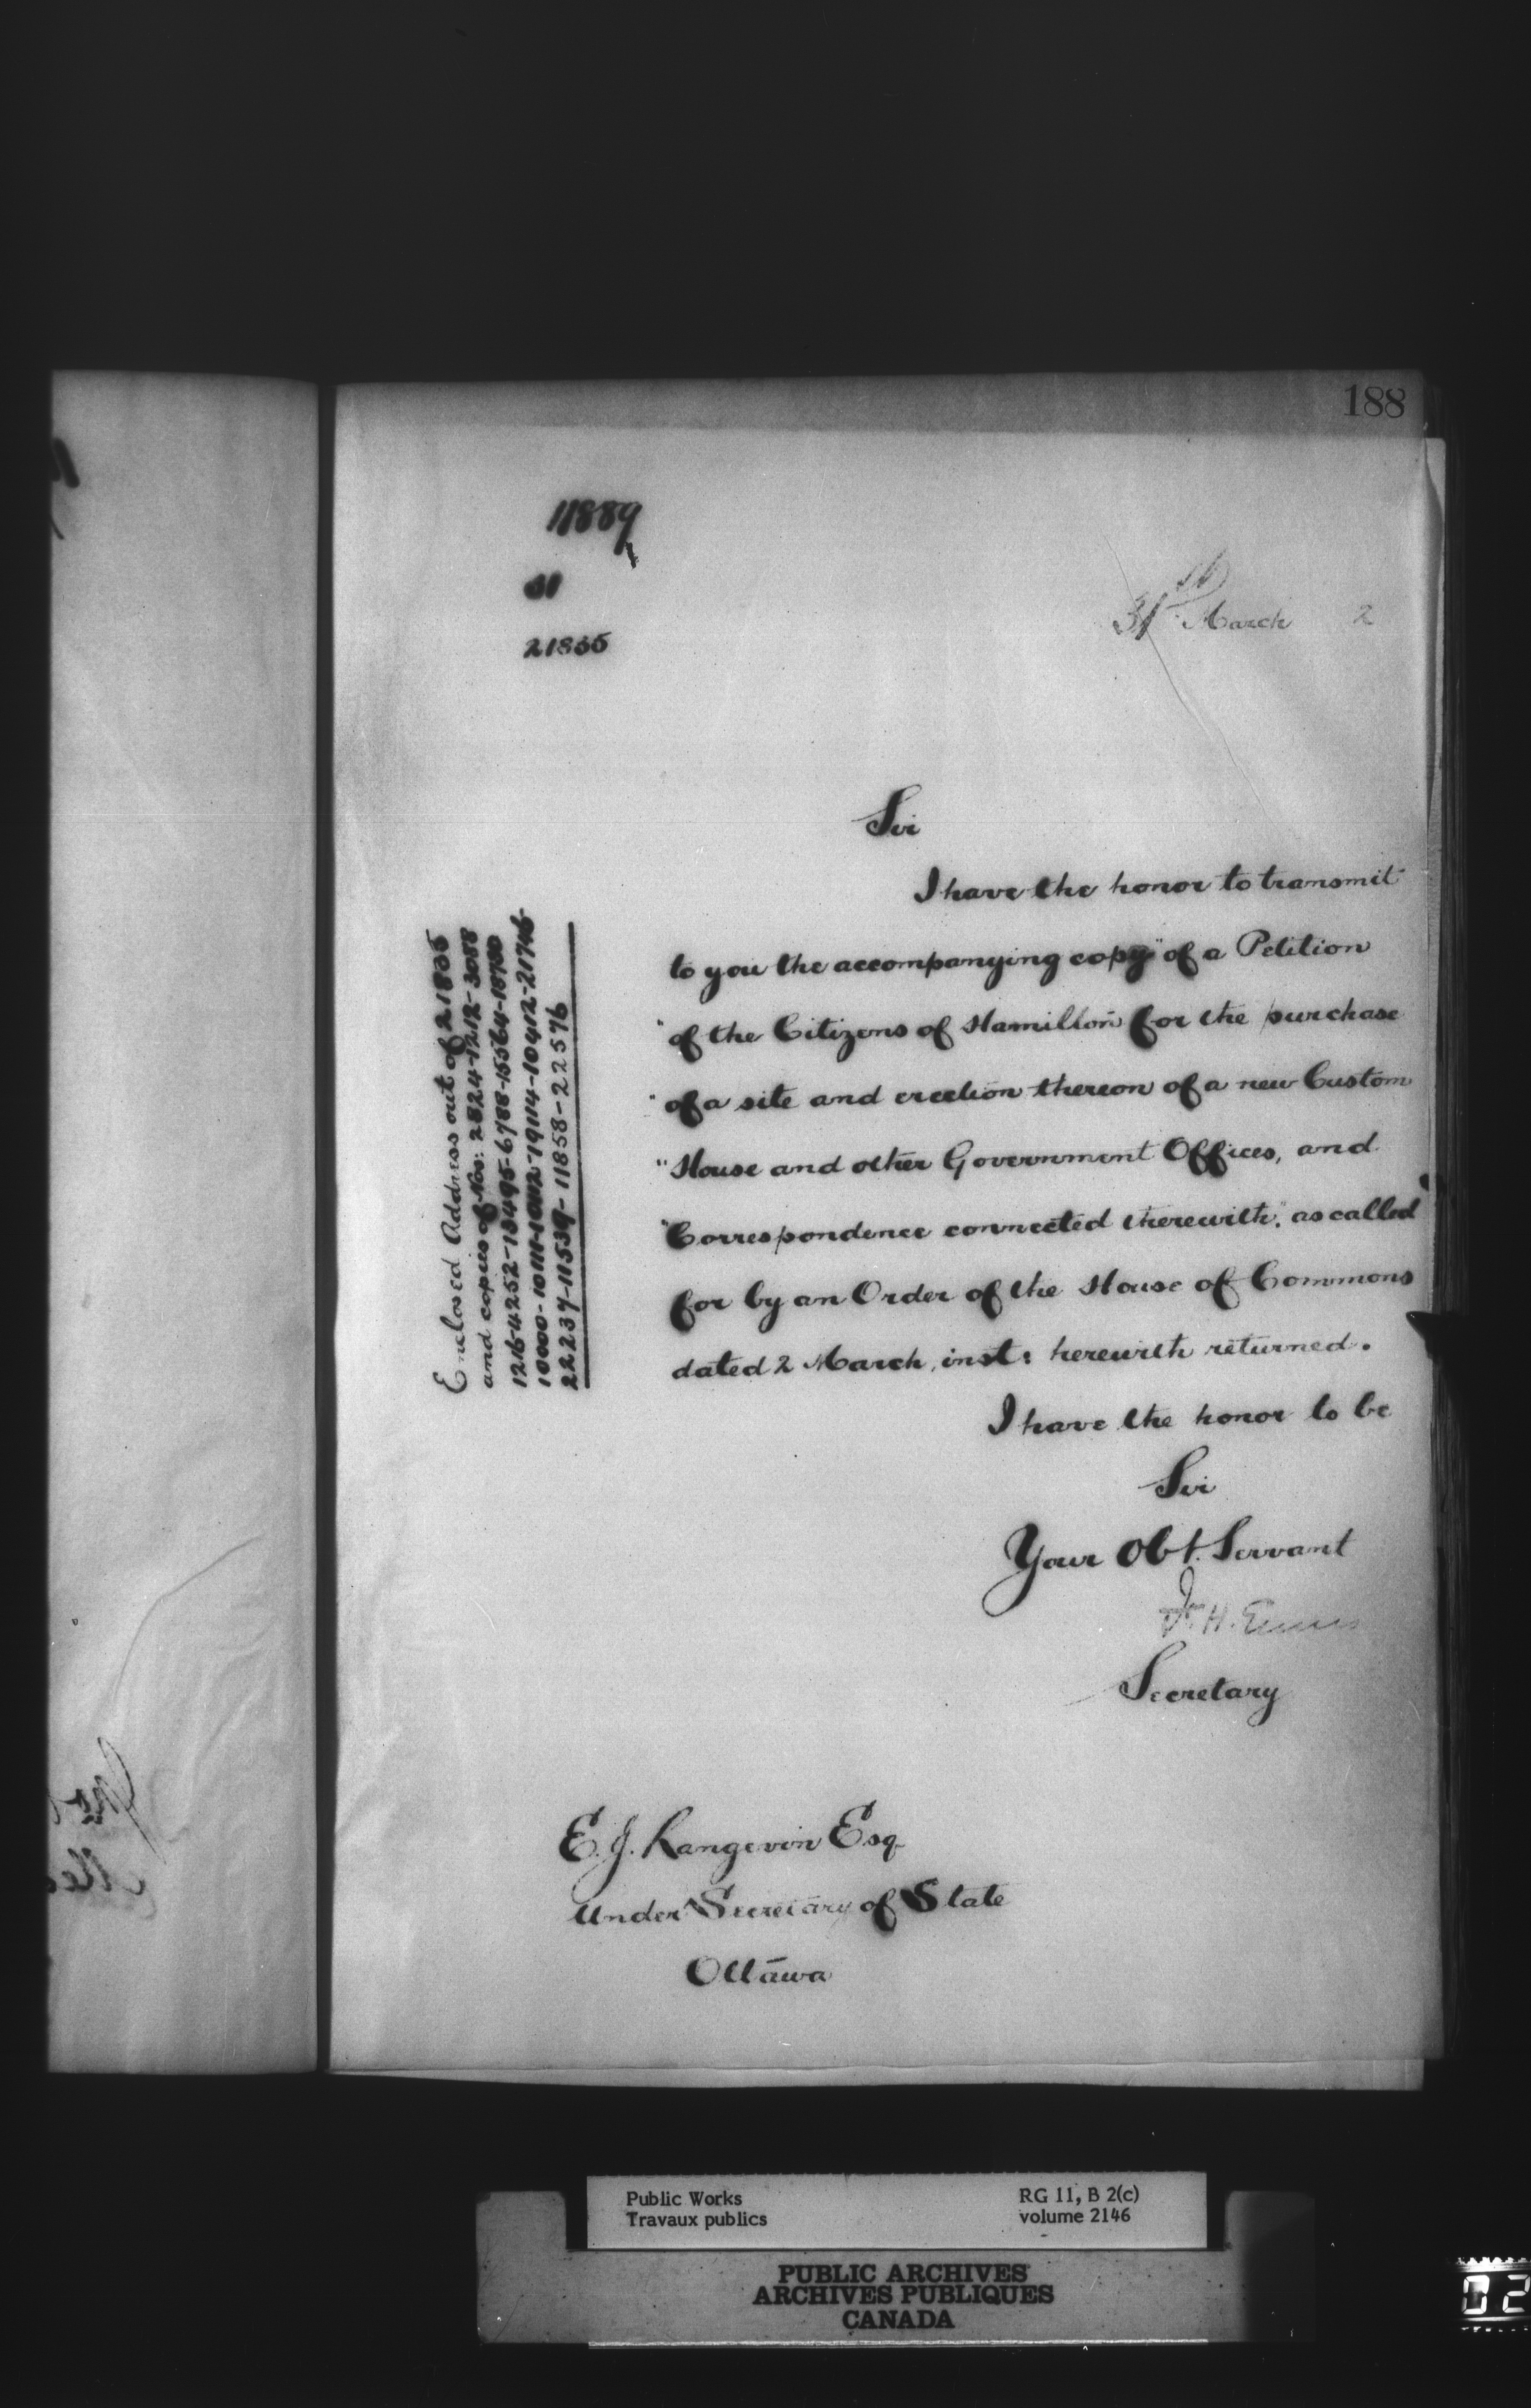 188
11889
21835
31st March 2
Sir
I have the honor to transmit
to you the accompanying copy "of a Petition
"of the Citizens of Hamilton for the purchase
"of a site and erection thereon of a new Custom
"House and other Government Offices, and
"Correspondence connected therewith," as called
for by an Order of the House of Commons
dated 2 March, inst: herewith returned.
I have the honor to be
Sir
Your Obt. Servant
F. H. Ennis
Secretary
Enclosed Address out of 21835
and copies of Nos: 2824-1212-3088
1216-4252-13495-6788-15564-18780
10000-10111-10112-19114-10412-21746-
22237-11539-11858-22576
E. J. Langevin Esq
Under Secretary of State
Ottawa
Public Works
Travaux publics
RG 11, B 2(c)
volume 2146
PUBLIC ARCHIVES
ARCHIVES PUBLIQUES
CANADA
02